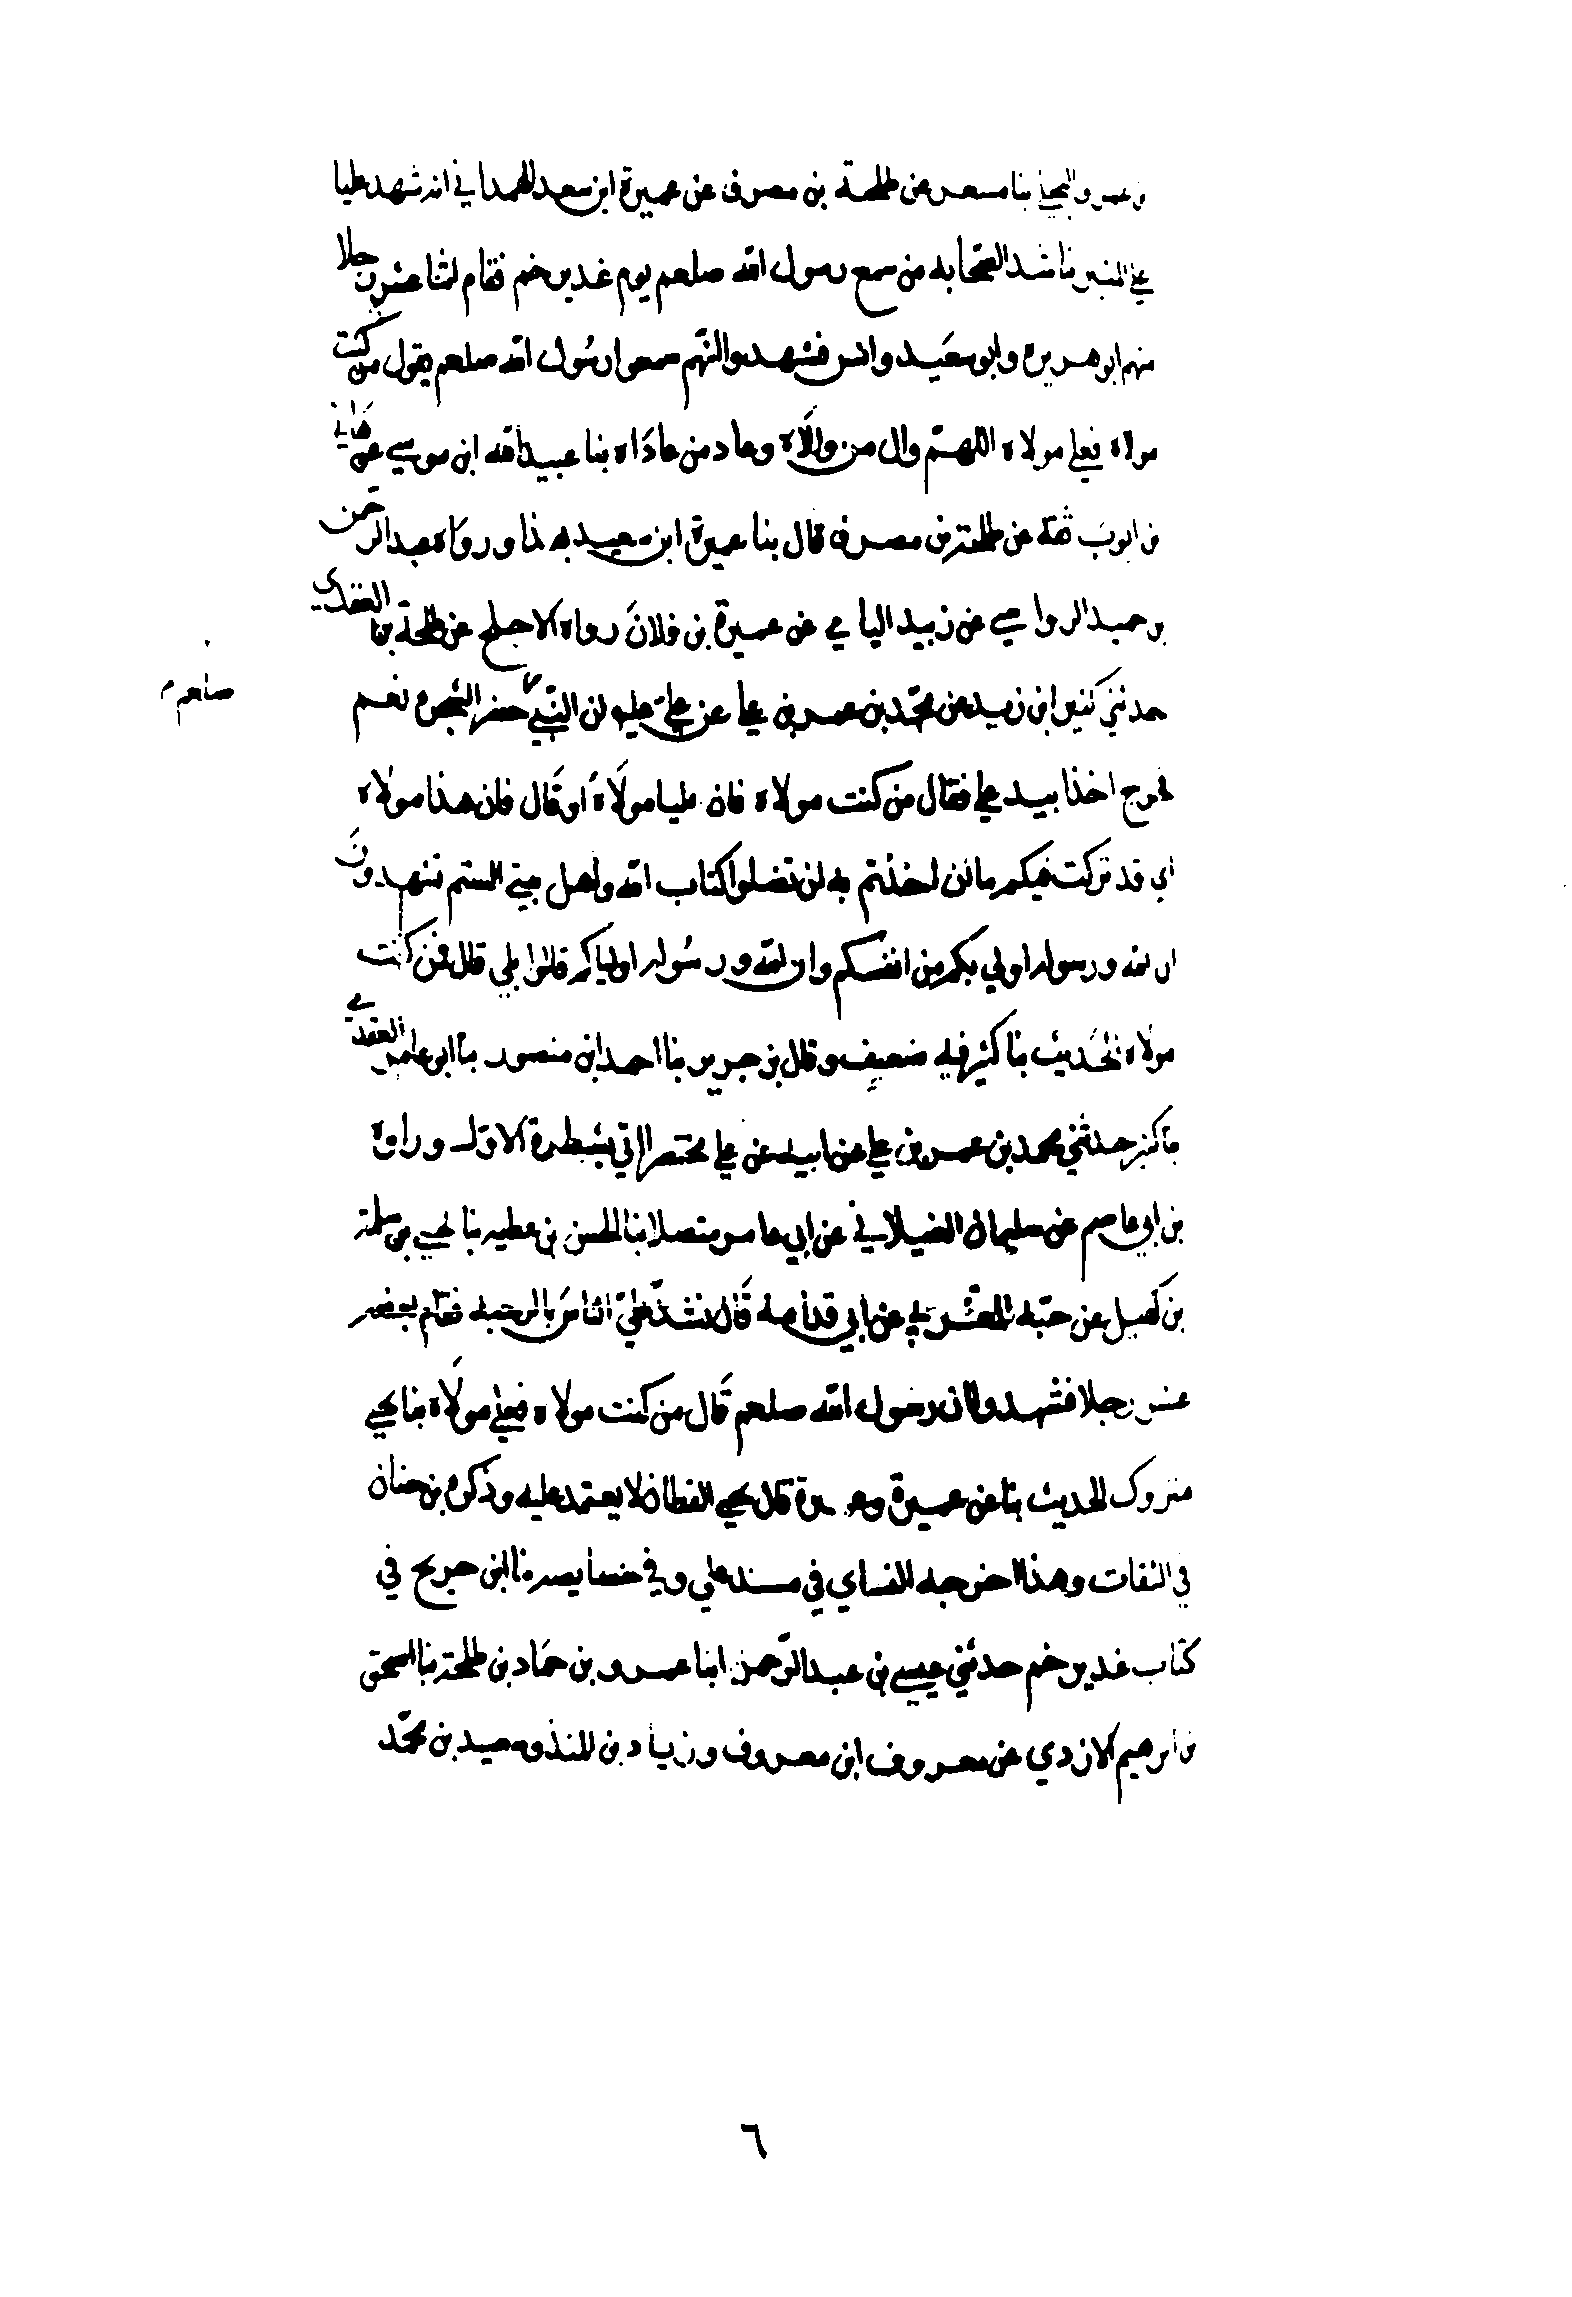 بن عمرو البجلي بنا مسعر عن طلحة بن مصرف عن عميرة ابن سعد الهمداني انه شهد عليا
علي المنبر ناشد الصحابه من سمع رسول الله صلعم يوم غدير خم فقام اثنا عشر رجلا
منهم ابو هريره وابو سعيد وانس فشهدوا انهم سمعوا رسول الله صلعم يقول من كنت
مولاه فعلي مولاه اللهم وال من والاه وعاد من عاداه بنا عبيد الله ابن موسي عن هاني
بن ايوب ثقة عن طلحة بن مصرف قال بنا عميرة ابن سعيد بهذا ورواه عبد الرحمن
بن حميد الرواسي عن زبيد اليامي عن عميرة بن فلان رواه الاجلح عن طلحة بنا العقدي
حدثني كثير ابن زيد عن محمد بن عمر بن علي عن علي ان النبي حضر الشجرة بخم
صلعم
فخرج اخذا بيد علي فقال من كنت مولاه فان عليا مولاه او قال فان هذا مولاه
اني قد تركت فيكم ما ان اخذتم به لن تضلوا كتاب الله واهل بيتي الستم تشهدون
ان الله ورسوله اولي بكم من انفسكم وان الله ورسوله اولياكم قالوا بلي قال فمن كنت
مولاه الحديث بنا كثير فيه ضعيف وقال بن جرير بنا احمد ابن منصور بنا ابو عامر العقدي
بنا كثير حدثني محمد بن عمر بن علي عن ابيه عن علي مختصرا لي بشطرة الاول ورواه
بن ابي عاصم عن سليمان الغيلاني عن ابي عامر متصلا بنا الحسن بن عطيه بنا يحيي بن سلمة
بن كهيل عن حبه العرني عن ابي قدامه قال نشد علي الناس بالرحبه فقام بضعه
عشر رجلا فشهدوا ان رسول الله صلعم قال من كنت مولاه فعلي مولاه بنا يحيي
متروك الحديث بنا عن عميرة قال يحيي القطان لا يعتمد عليه وذكره بن حبان
في الثقات وهذا اخرجه النساي في مسند علي وفي خصايصه بنا ابن جرير في
كتاب غدير خم حدثني عيسي بن عبد الرحمن ابنا عمرو بن حماد بن طلحة بنا اسحق
بن ابرهيم الازدي عن معروف ابن معروف وزياد بن المنذر وسعيد بن محمد
٦